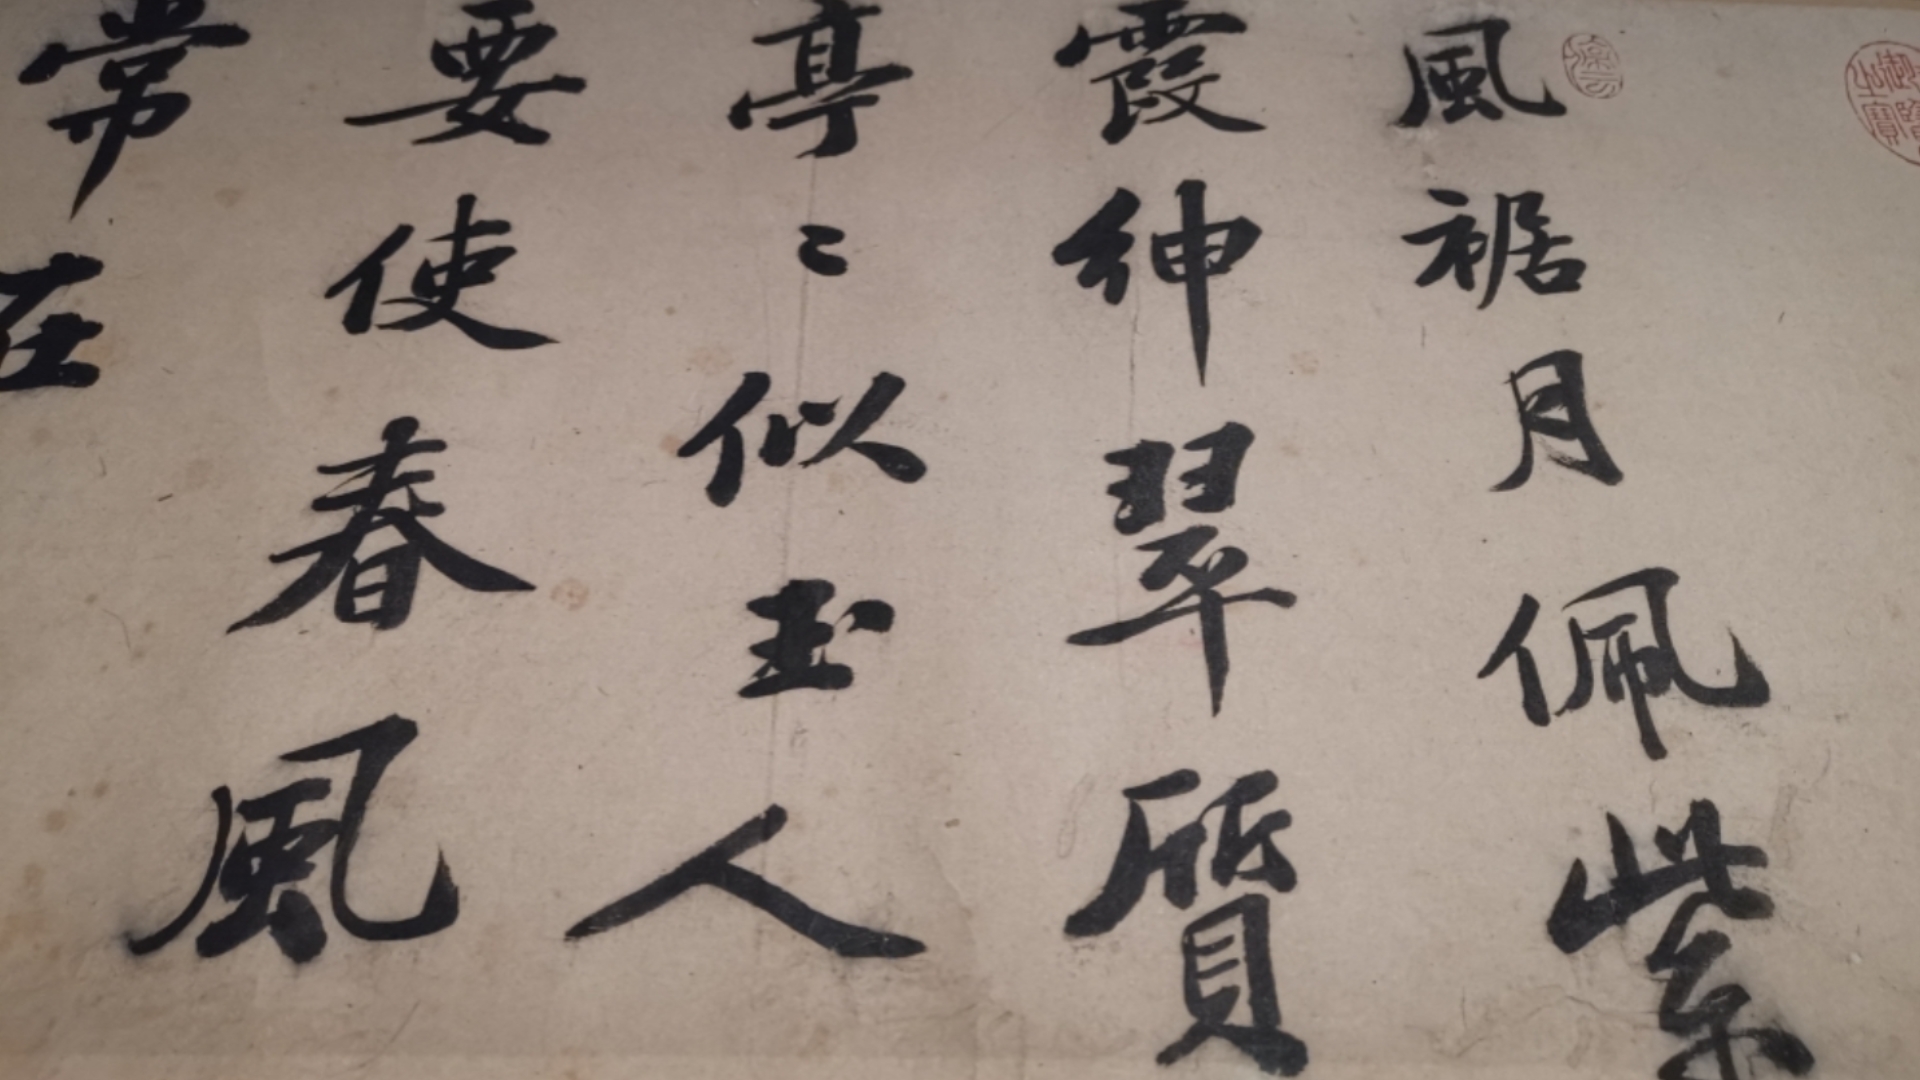 風裾月佩紫
霞紳翠質
亭〻似玉人
要使春風
常在